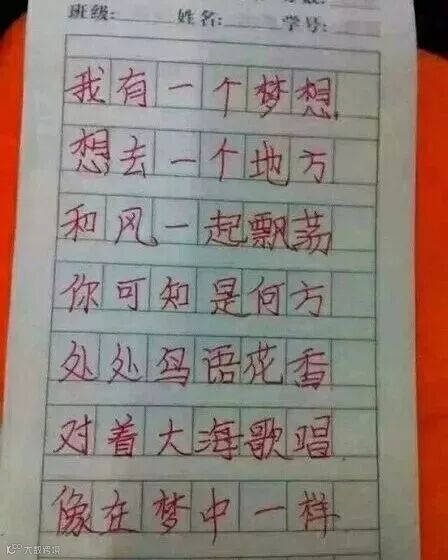 班级: 姓名: 学号:
我有一个梦想
想去一个地方
和风一起飘荡
你可知是何方
处处鸟语花香
对着大海歌唱
像在梦中一样
大数跨境